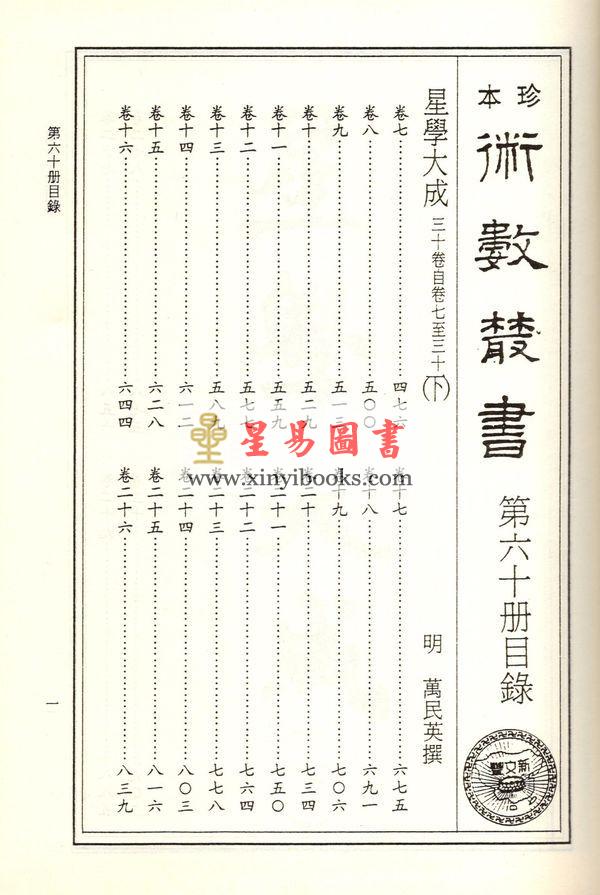 珍本
術數叢書
第六十册目錄
新文豐
公司
星學大成 三十卷自卷七至三十(下)
明 萬民英撰
卷七……四七六
卷八……五〇〇
卷九……五一三
卷十……五二九
卷十一……五五九
卷十二……五七七
卷十三……五八九
卷十四……六一二
卷十五……六二八
卷十六……六四四
卷十七……六七五
卷十八……六九一
卷十九……七〇六
卷二十……七三四
卷二十一……七五〇
卷二十二……七六四
卷二十三……七七八
卷二十四……八〇三
卷二十五……八一六
卷二十六……八三九
第六十册目錄
一
星易圖書
www.xinyibooks.com